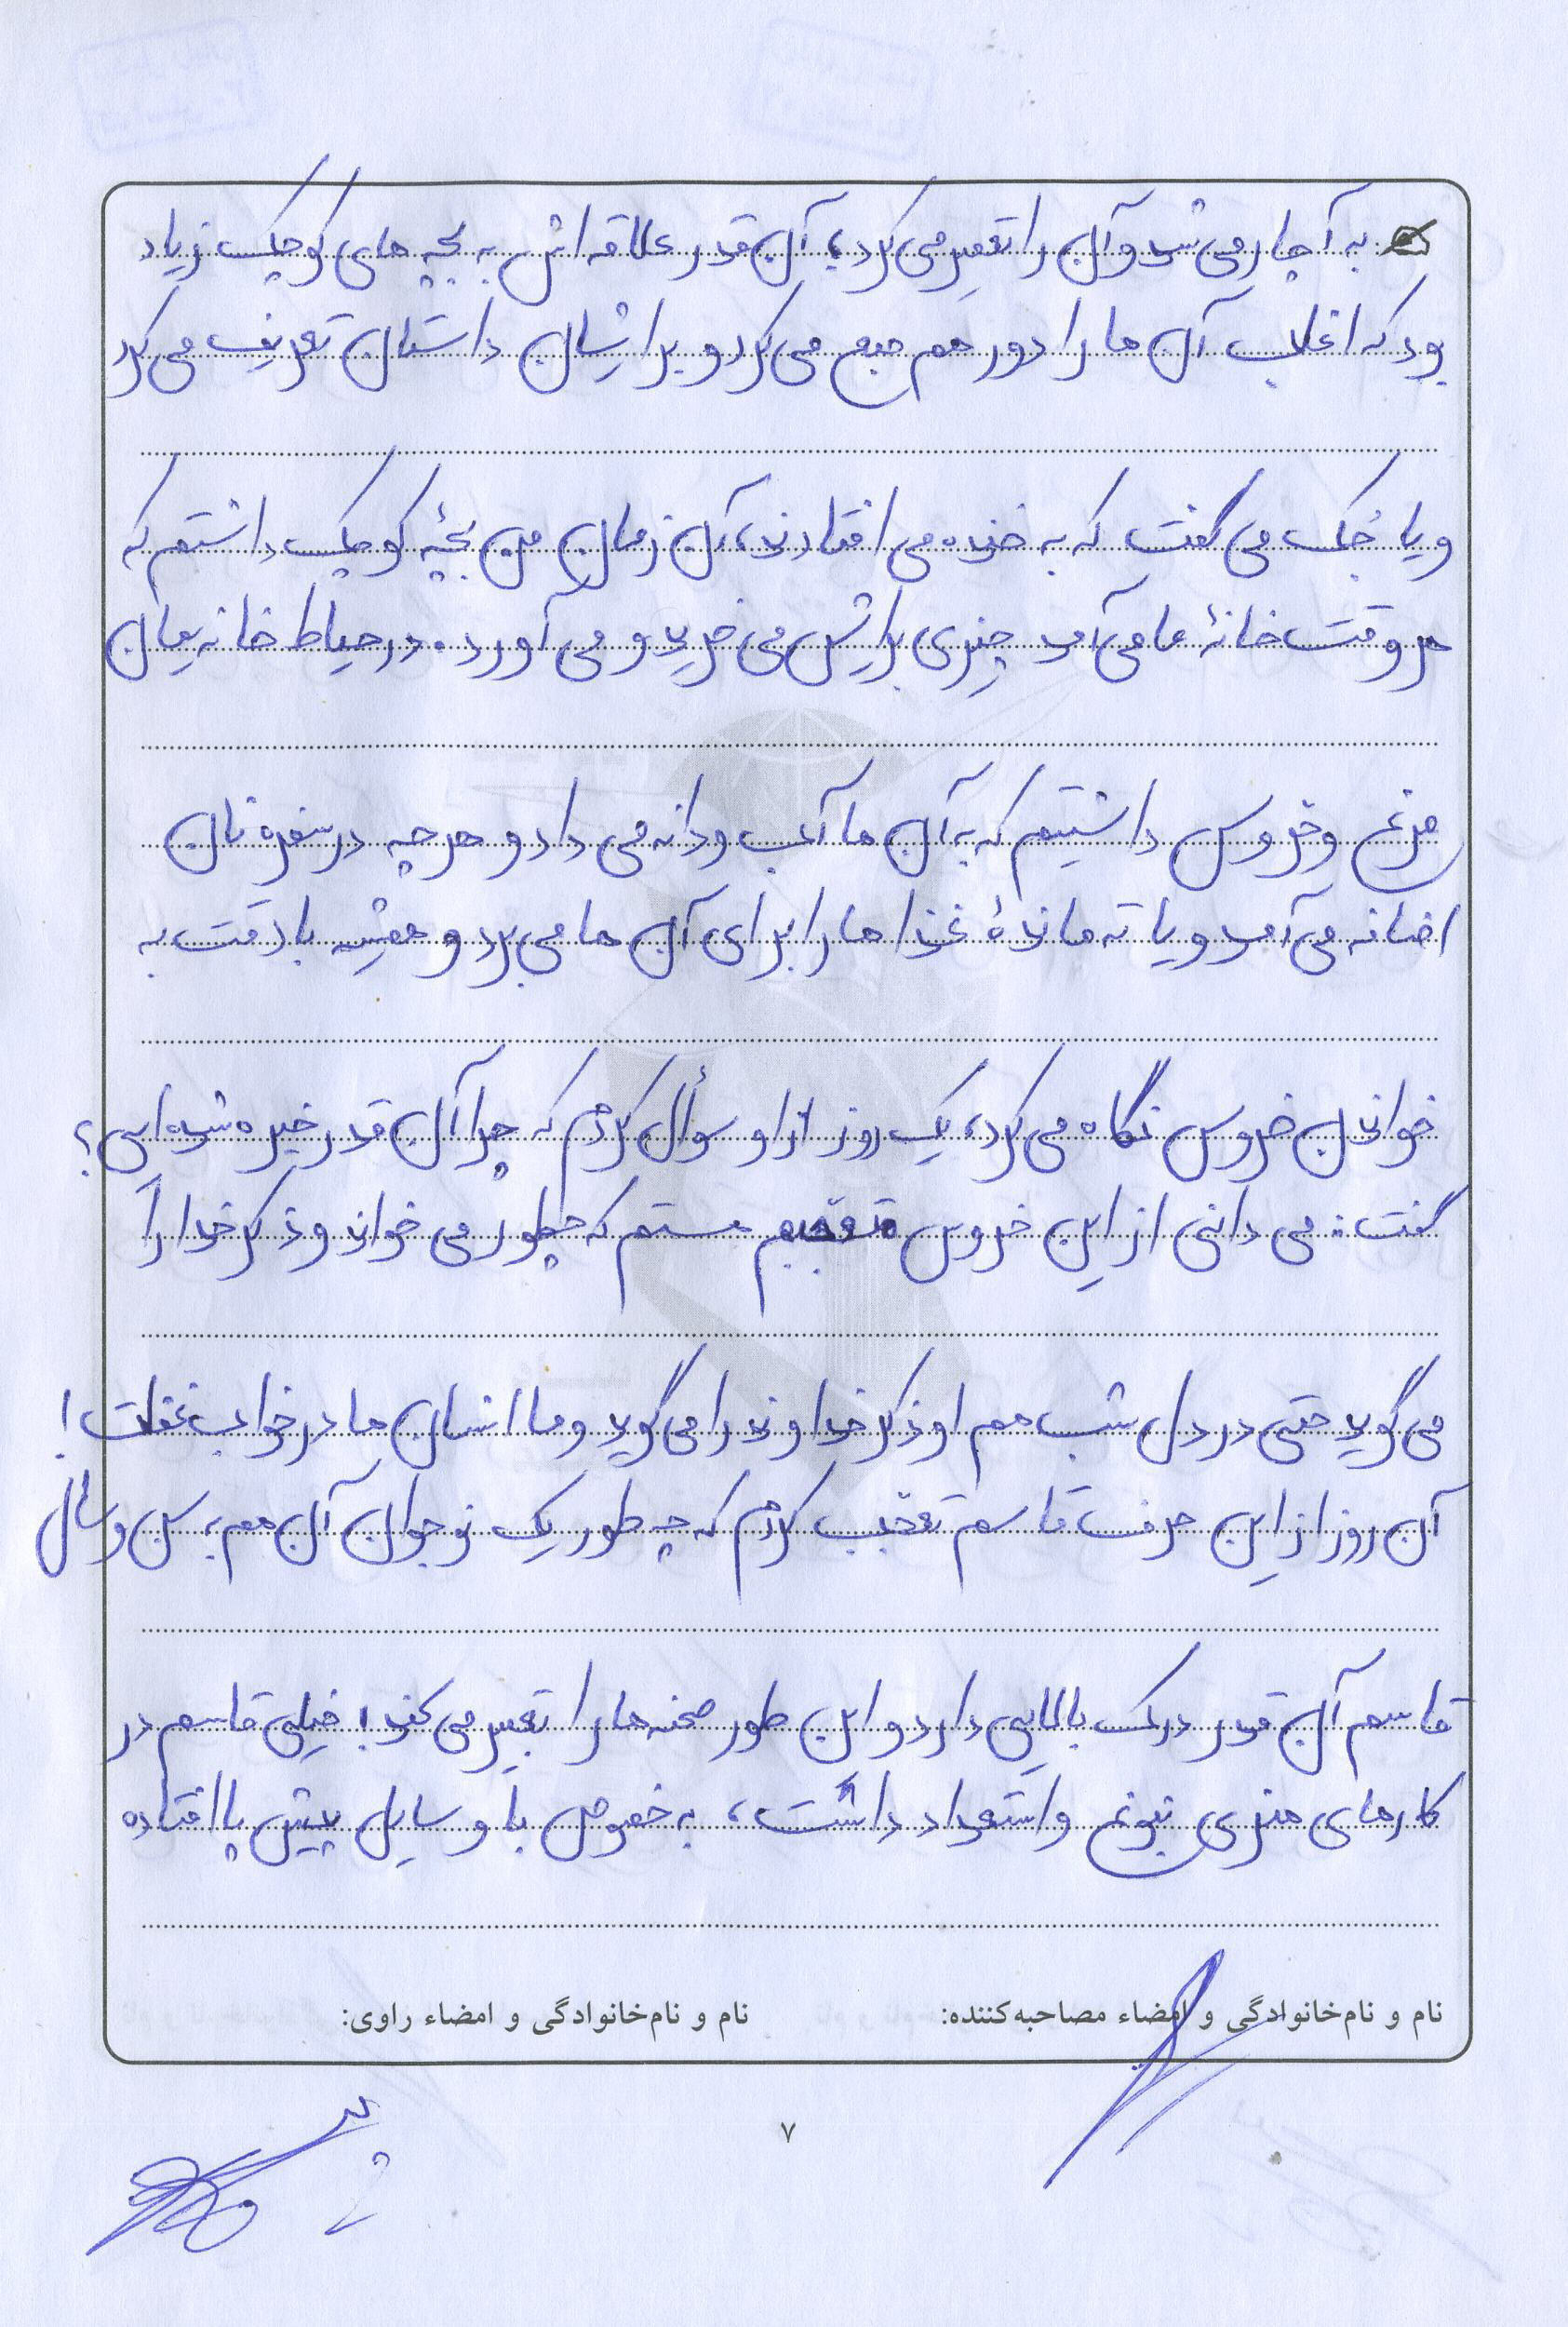 به آچار می شد و آن را تعمیر می کرد؛ آن قدر علاقه اش به بچّه های کوچک زیاد
بود که اغلب آن ها را دور هم جمع می کرد و برایشان داستان تعریف می کرد
و یا جُک می گفت که به خنده می افتادند، آن زمان من بچّۀ کوچک داشتم که
هر وقت خانۀ ما می آمد چیزی برایش می خرید و می آورد. در حیاط خانه یمان
مرغ و خروس داشتیم که به آن ها آب و دانه می داد و هر چه در سفره نان
اضافه می آمد و یا ته ماندۀ غذاها را برای آن ها می برد و همیشه با دقّت به
خواندن خروس نگاه می کرد، یک روز از او سؤال کردم که چرا آن قدر خیره شده ای؟
گفت: می دانی از این خروس متعجبم هستم که چطور می خواند و ذکر خدا را
می گوید حتی در دل شب هم او ذکر خداوند را می گوید و ما انسان ها در خواب غفلت!
آن روز از این حرف قاسم تعجّب کردم که چه طور یک نوجوان آن هم به سن و سال
قاسم آن قدر درک بالایی دارد و این طور صحنه ها را تعبیر می کند! خیلی قاسم در
کارهای هنری نبوغ و استعداد داشت، به خصوص با وسایل پیش پا افتاده
نام و نام‌خانوادگی و امضاء مصاحبه‌کننده: نام و نام‌خانوادگی و امضاء راوی:
۷